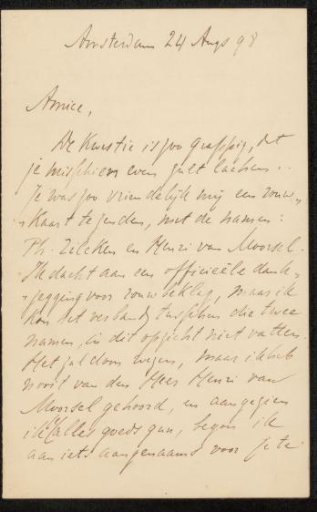 Amsterdam 24 Augs 98
Amice,
De kwestie is zoo grappig, dat
je misschien even zult lachen..
Je was zoo vriendelijk mij een rouw-
-kaart te zenden, met de namen:
Ph. Zilcken en Henri van Moorsel.
Ik dacht aan een officieële dank-
-zegging voor rouwbeklag, maar ik
kon het verband tusschen die twee
namen, in dit opzicht niet vatten.
Het zal dom wezen, maar ik heb
nooit van den Heer Henri van
Moorsel gehoord, en aangezien
ik U alles goeds gun, begon ik
aan iets aangenaams voor je te